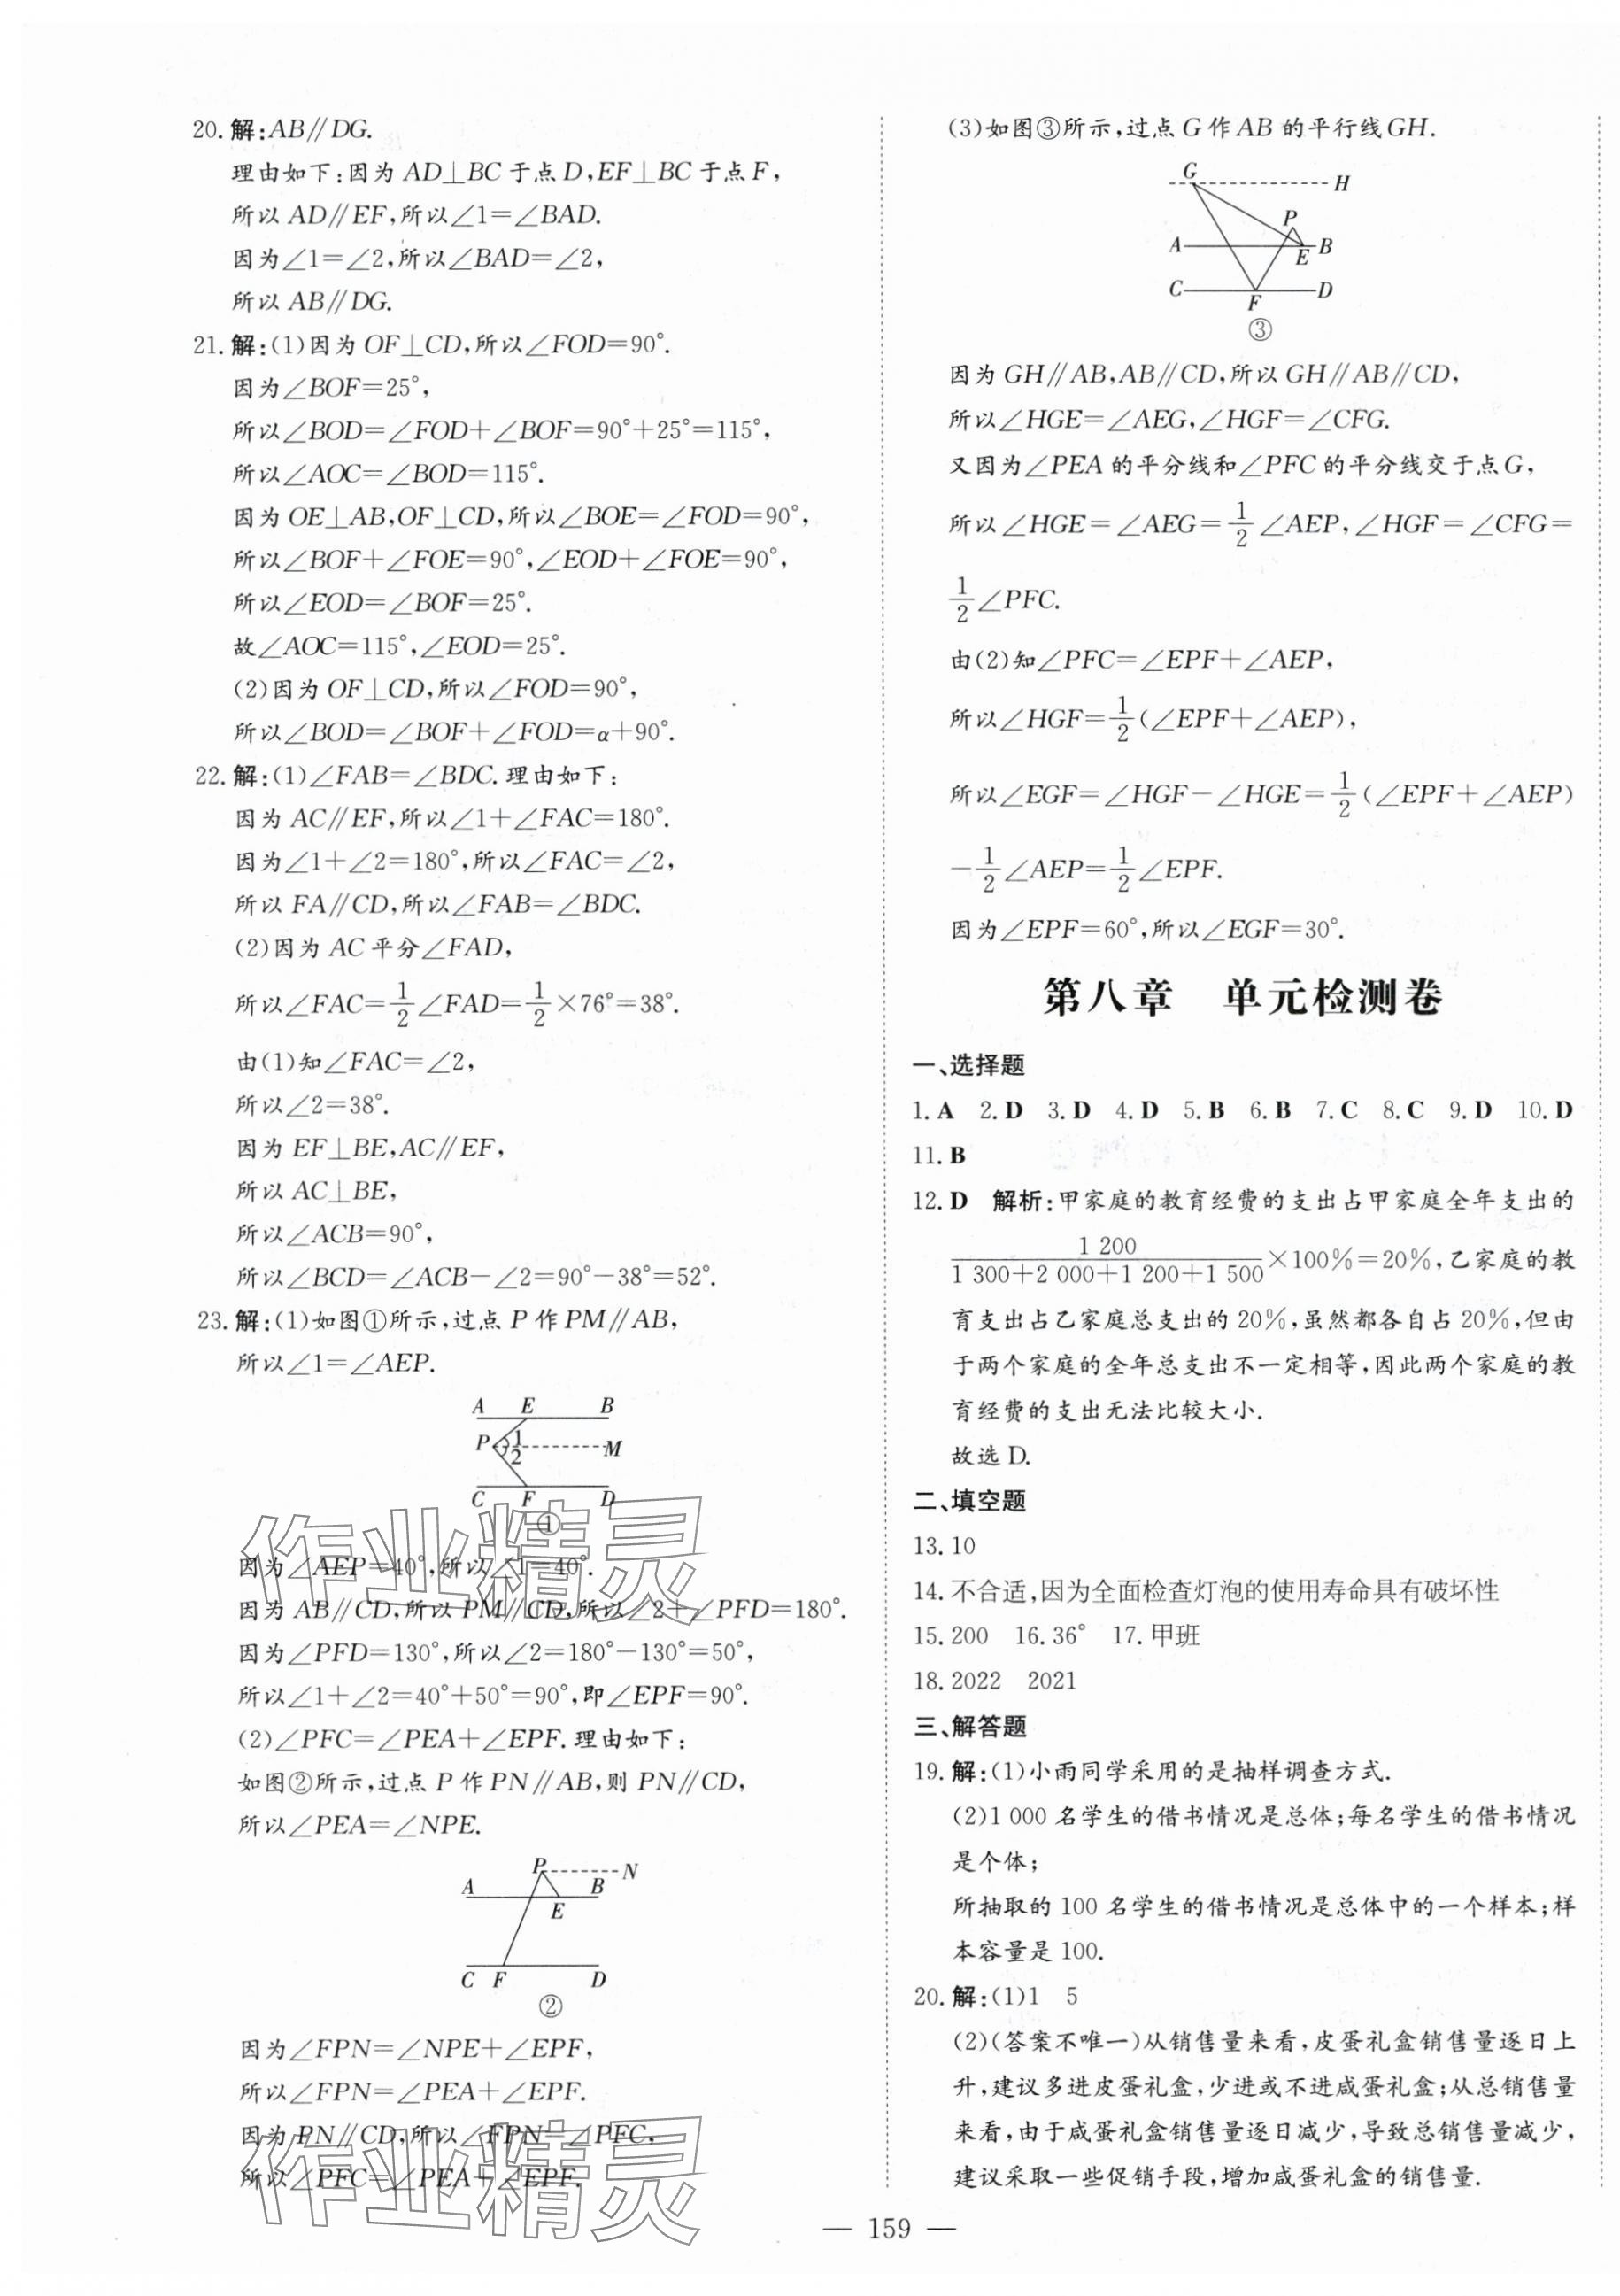 20. 解:AB∥DG.
理由如下:因为 AD⊥BC 于点 D,EF⊥BC 于点 F,
所以 AD∥EF,所以∠1=∠BAD.
因为∠1=∠2,所以∠BAD=∠2,
所以 AB∥DG.
21. 解:(1)因为 OF⊥CD,所以∠FOD=90°.
因为∠BOF=25°,
所以∠BOD=∠FOD+∠BOF=90°+25°=115°,
所以∠AOC=∠BOD=115°.
因为 OE⊥AB,OF⊥CD,所以∠BOE=∠FOD=90°,
所以∠BOF+∠FOE=90°,∠EOD+∠FOE=90°,
所以∠EOD=∠BOF=25°.
故∠AOC=115°,∠EOD=25°.
(2)因为 OF⊥CD,所以∠FOD=90°,
所以∠BOD=∠BOF+∠FOD=α+90°.
22. 解:(1)∠FAB=∠BDC. 理由如下:
因为 AC∥EF,所以∠1+∠FAC=180°.
因为∠1+∠2=180°,所以∠FAC=∠2,
所以 FA∥CD,所以∠FAB=∠BDC.
(2)因为 AC 平分∠FAD,
所以∠FAC=1/2∠FAD=1/2×76°=38°.
由(1)知∠FAC=∠2,
所以∠2=38°.
因为 EF⊥BE,AC∥EF,
所以 AC⊥BE,
所以∠ACB=90°,
所以∠BCD=∠ACB-∠2=90°-38°=52°.
23. 解:(1)如图①所示,过点 P 作 PM∥AB,
所以∠1=∠AEP.
A E B
P 1 2 M
C F D
①
因为∠AEP=40°,所以∠1=40°.
因为 AB∥CD,所以 PM∥CD,所以∠2+∠PFD=180°.
因为∠PFD=130°,所以∠2=180°-130°=50°,
所以∠1+∠2=40°+50°=90°,即∠EPF=90°.
(2)∠PFC=∠PEA+∠EPF. 理由如下:
如图②所示,过点 P 作 PN∥AB,则 PN∥CD,
所以∠PEA=∠NPE.
P N
A B
E
C F D
②
因为∠FPN=∠NPE+∠EPF,
所以∠FPN=∠PEA+∠EPF.
因为 PN∥CD,所以∠FPN=∠PFC,
所以∠PFC=∠PEA+∠EPF.
作业精灵
作业精灵
(3)如图③所示,过点 G 作 AB 的平行线 GH.
G H
P
A E B
C F D
③
因为 GH∥AB,AB∥CD,所以 GH∥AB∥CD,
所以∠HGE=∠AEG,∠HGF=∠CFG.
又因为∠PEA 的平分线和∠PFC 的平分线交于点 G,
所以∠HGE=∠AEG=1/2∠AEP,∠HGF=∠CFG=
1/2∠PFC.
由(2)知∠PFC=∠EPF+∠AEP,
所以∠HGF=1/2(∠EPF+∠AEP),
所以∠EGF=∠HGF-∠HGE=1/2(∠EPF+∠AEP)
-1/2∠AEP=1/2∠EPF.
因为∠EPF=60°,所以∠EGF=30°.
第八章 单元检测卷
一、选择题
1. A 2. D 3. D 4. D 5. B 6. B 7. C 8. C 9. D 10. D
11. B
12. D 解析:甲家庭的教育经费的支出占甲家庭全年支出的
1 200/(1 300+2 000+1 200+1 500)×100%=20%,乙家庭的教
育支出占乙家庭总支出的 20%,虽然都各自占 20%,但由
于两个家庭的全年总支出不一定相等,因此两个家庭的教
育经费的支出无法比较大小.
故选 D.
二、填空题
13. 10
14. 不合适,因为全面检查灯泡的使用寿命具有破坏性
15. 200 16. 36° 17. 甲班
18. 2022 2021
三、解答题
19. 解:(1)小雨同学采用的是抽样调查方式.
(2)1 000 名学生的借书情况是总体;每名学生的借书情况
是个体;
所抽取的 100 名学生的借书情况是总体中的一个样本;样
本容量是 100.
20. 解:(1)1 5
(2)(答案不唯一)从销售量来看,皮蛋礼盒销售量逐日上
升,建议多进皮蛋礼盒,少进或不进咸蛋礼盒;从总销售量
来看,由于咸蛋礼盒销售量逐日减少,导致总销售量减少,
建议采取一些促销手段,增加咸蛋礼盒的销售量.
— 159 —